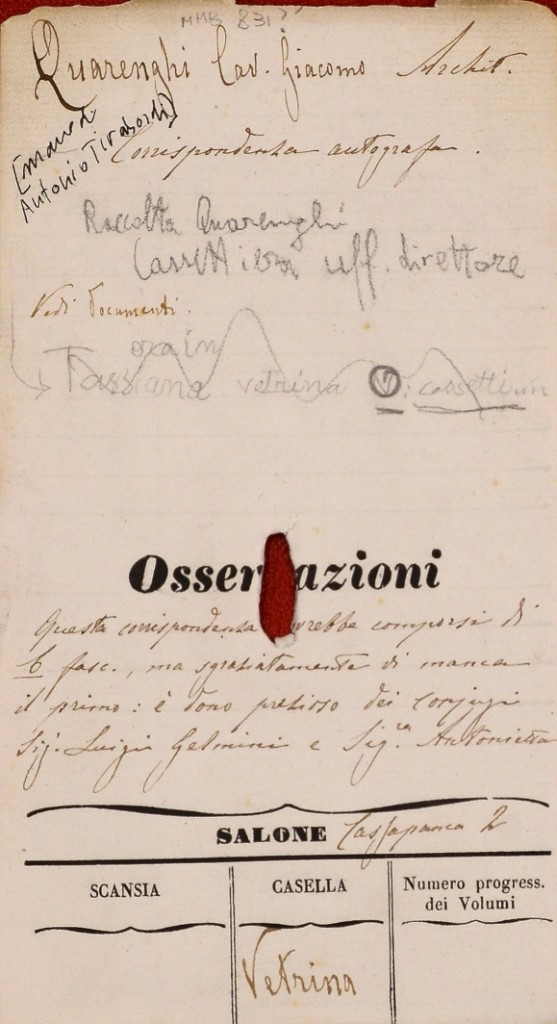 MMB 831
Quarenghi Cav. Giacomo Archit.
[mano di
Antonio Tiraboschi]
Corrispondenza autografa.
Raccolta Quarenghi
Cassettiera uff. direttore
Vedi Documenti.
ora in
Tassiana vetrina V: cassetti
Osservazioni
Questa corrispondenza dovrebbe comporsi di
6 fasc., ma sgraziatamente di manca
il primo: è dono prezioso dei conjugi
Sig. Luigi Gelmini e Sig.ra Antonietta
SALONE Cassapanca 2
SCANSIA
CASELLA
Numero progress.
dei Volumi
Vetrina